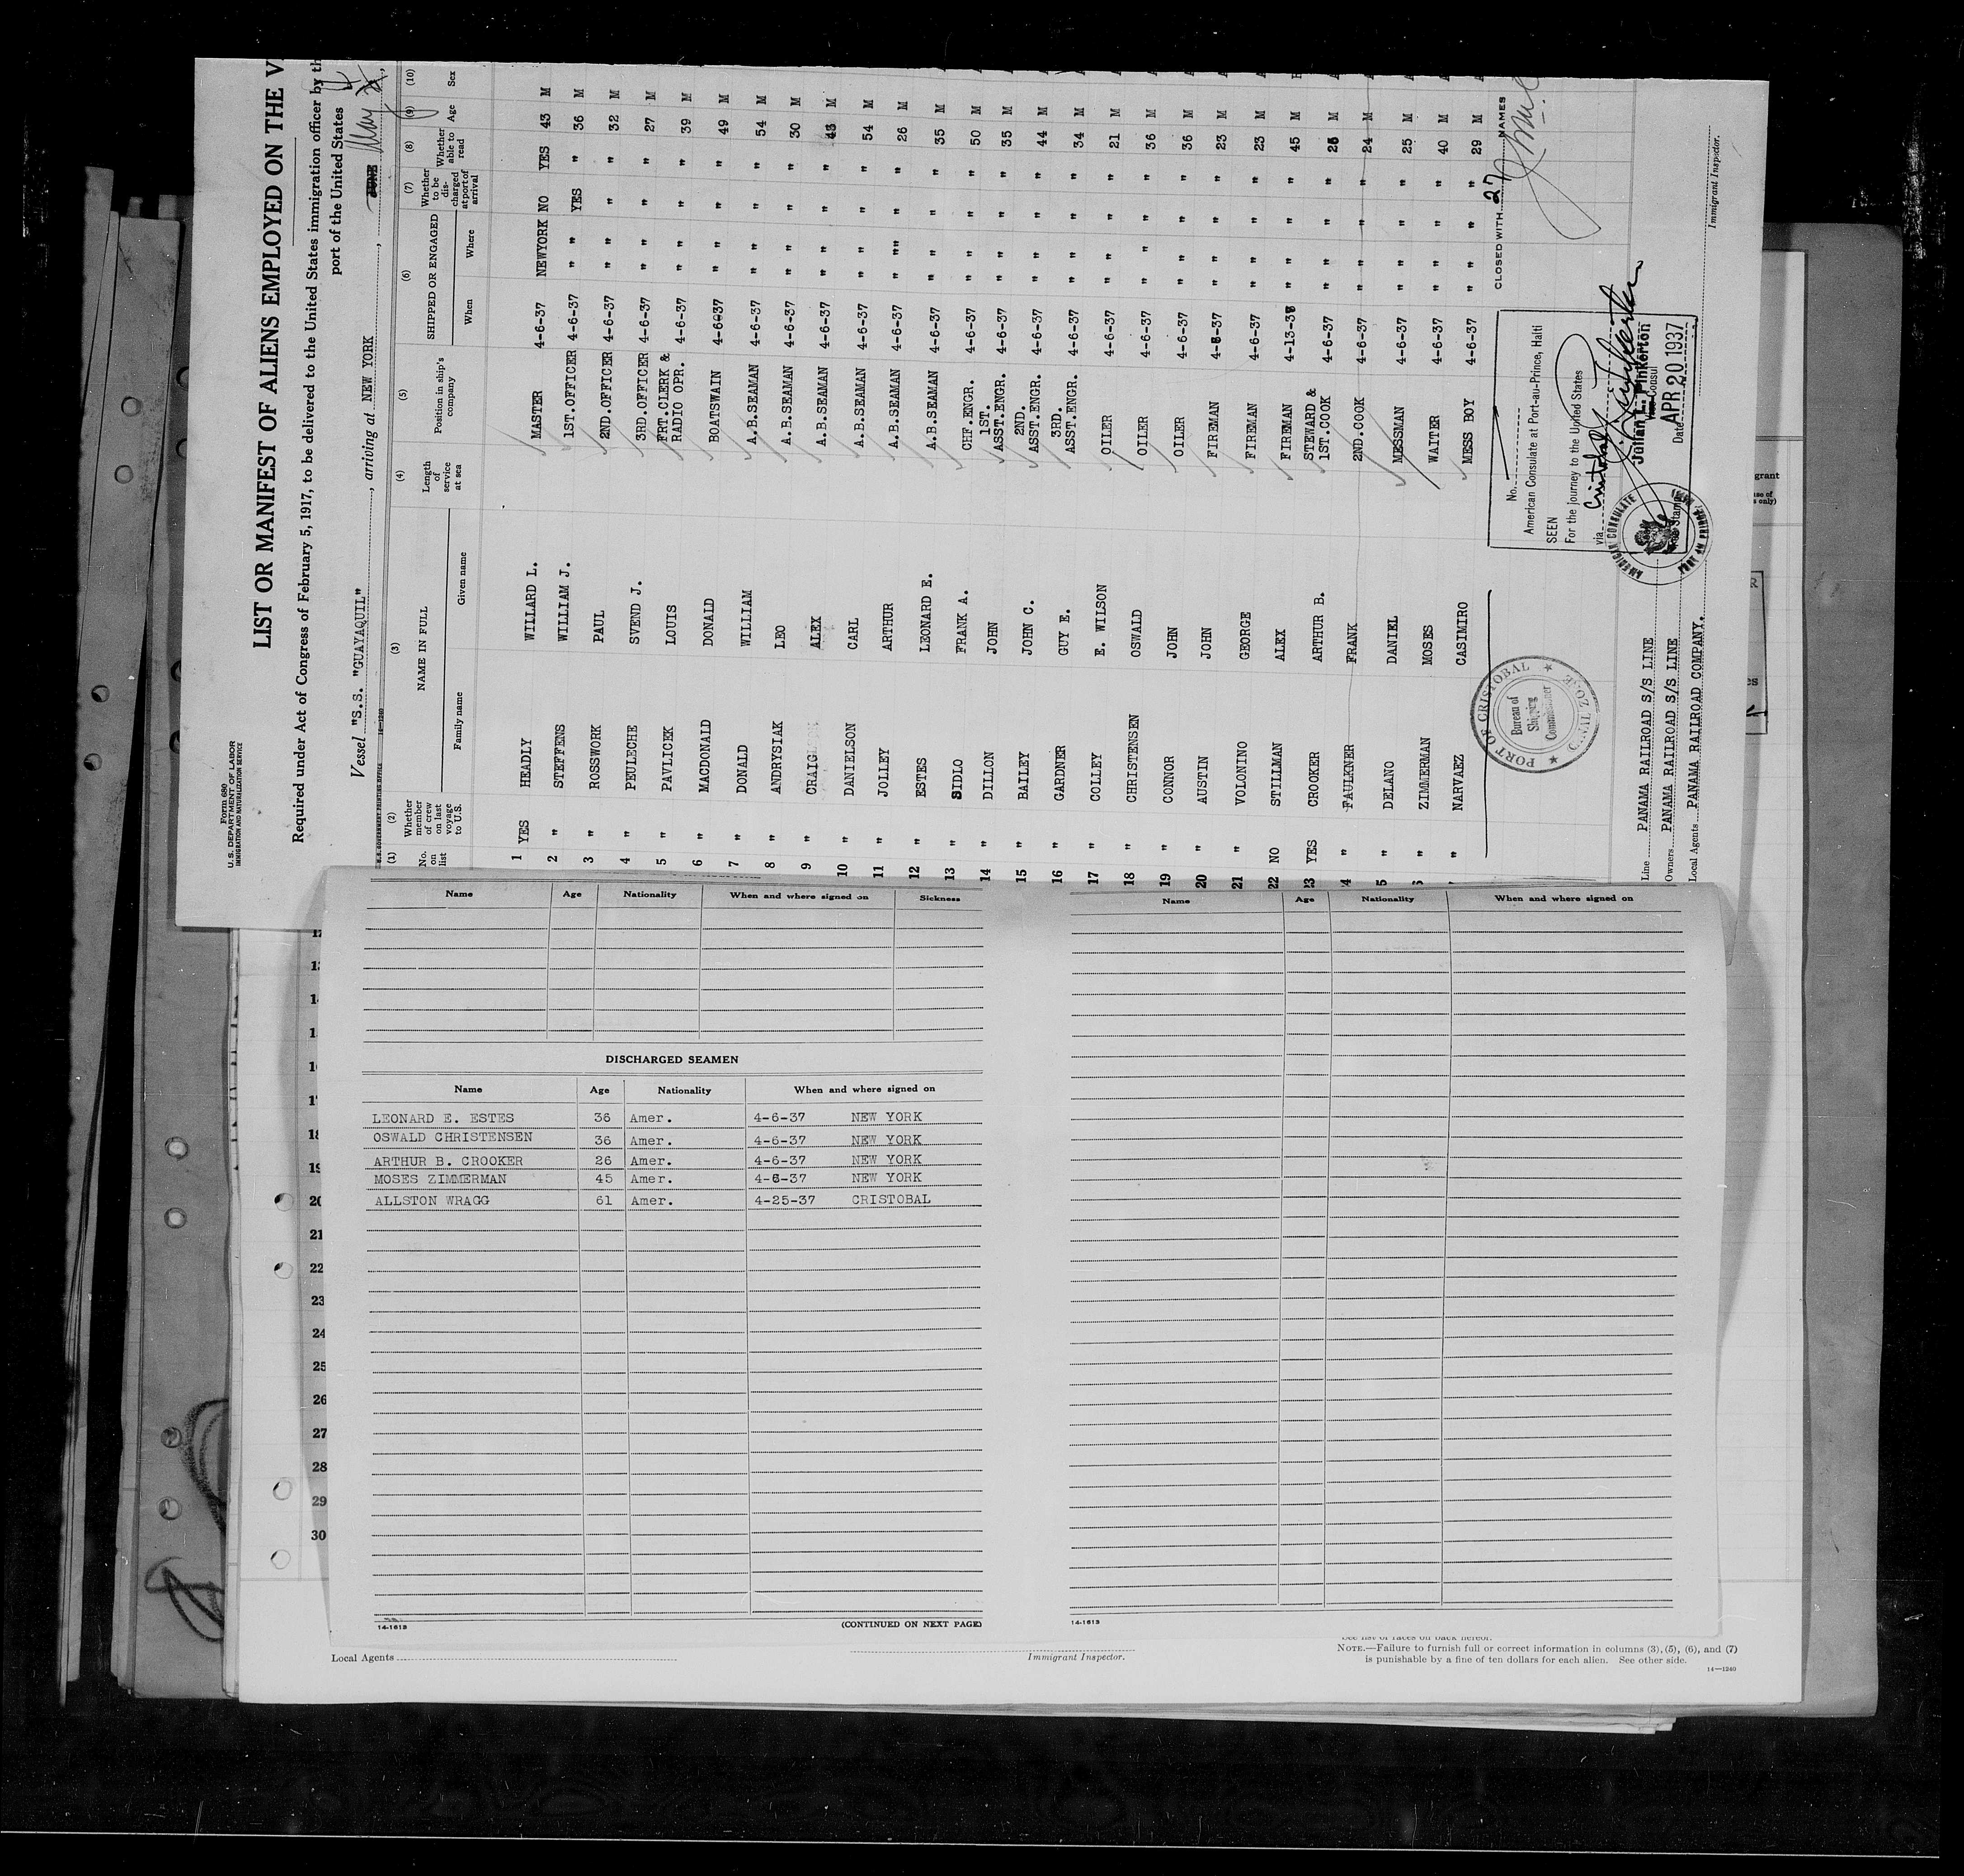 Form 680
U. S. DEPARTMENT OF LABOR
IMMIGRATION AND NATURALIZATION SERVICE
LIST OR MANIFEST OF ALIENS EMPLOYED ON THE V
Required under Act of Congress of February 5, 1917, to be delivered to the United States immigration officer by th
port of the United States
Vessel "S.S. "GUAYAQUIL" , arriving at NEW YORK , JUNE May
(1) (2) (3) (4) (5) (6) (7) (8) (9) (10)
No. on list Whether member of crew on last voyage to U.S. NAME IN FULL Family name Given name Length of service at sea Position in ship's company SHIPPED OR ENGAGED When Where Whether to be discharged at port of arrival Whether able to read Age Sex
1 YES HEADLY WILLARD L. MASTER 4-6-37 NEWYORK NO YES 43 M
2 " STEFFENS WILLIAM J. 1ST.OFFICER 4-6-37 " " YES " 36 M
3 " ROSSWORK PAUL 2ND.OFFICER 4-6-37 " " " " 32 M
4 " PEULECHE SVEND J. 3RD.OFFICER 4-6-37 " " " " 27 M
5 " PAVLICEK LOUIS FRT.CLERK & RADIO OPR. 4-6-37 " " " " 39 M
6 " MACDONALD DONALD BOATSWAIN 4-6-37 " " " " 49 M
7 " DONALD WILLIAM A.B.SEAMAN 4-6-37 " " " " 54 M
8 " ANDRYSIAK LEO A.B.SEAMAN 4-6-37 " " " " 30 M
9 " CRAIG ALEX A.B.SEAMAN 4-6-37 " " " " M
10 " DANIELSON CARL A.B.SEAMAN 4-6-37 " " " " 54 M
11 " JOLLEY ARTHUR A.B.SEAMAN 4-6-37 " "" " " 26 M
12 " ESTES LEONARD E. A.B.SEAMAN 4-6-37 " " " " 35 M
13 " SIDLO FRANK A. CHF.ENGR. 4-6-37 " " " " 50 M
14 " DILLON JOHN 1ST. ASST.ENGR. 4-6-37 " " " " 35 M
15 " BAILEY JOHN C. 2ND. ASST.ENGR. 4-6-37 " " " " 44 M
16 " GARDNER GUY E. 3RD. ASST.ENGR. 4-6-37 " " " " 34 M
17 " COLLEY E. WILSON OILER 4-6-37 " " " " 21 M
18 " CHRISTENSEN OSWALD OILER 4-6-37 " " " " 36 M
19 " CONNOR JOHN OILER 4-6-37 " " " " 36 M
20 " AUSTIN JOHN FIREMAN 4-6-37 " " " " 23 M
21 " VOLONINO GEORGE FIREMAN 4-6-37 " " " " 23 M
22 NO STILLMAN ALEX FIREMAN 4-13-37 " " " " 45 M
23 YES CROOKER ARTHUR B. STEWARD & 1ST.COOK 4-6-37 " " " " 26 M
4 " FAULKNER FRANK 2ND.COOK 4-6-37 " " " " 24 M
5 " DELANO DANIEL MESSMAN 4-6-37 " " " " 25 M
6 " ZIMMERMAN MOSES WAITER 4-6-37 " " " " 40 M
" NARVAEZ CASIMIRO MESS BOY 4-6-37 " " " " 29 M
CLOSED WITH 27 NAMES
PORT OF CRISTOBAL CANAL ZONE
Bureau of
Shipping
Commissioner
No.
American Consulate at Port-au-Prince, Haiti
SEEN
For the journey to the United States
via Cristobal
Julian L. Pinkerton
Vice Consul
Date APR 20 1937
Stamp
AMERICAN CONSULATE
PORT AU PRINCE
Line PANAMA RAILROAD S/S LINE
Owners PANAMA RAILROAD S/S LINE
Local Agents PANAMA RAILROAD COMPANY.
Immigrant Inspector.
Name Age Nationality When and where signed on Sickness
DISCHARGED SEAMEN
Name Age Nationality When and where signed on
LEONARD E. ESTES 36 Amer. 4-6-37 NEW YORK
OSWALD CHRISTENSEN 36 Amer. 4-6-37 NEW YORK
ARTHUR B. CROOKER 26 Amer. 4-6-37 NEW YORK
MOSES ZIMMERMAN 45 Amer. 4-6-37 NEW YORK
ALLSTON WRAGG 61 Amer. 4-25-37 CRISTOBAL
14-1613
(CONTINUED ON NEXT PAGE)
Name Age Nationality When and where signed on
14-1613
21
22
23
24
25
26
27
28
29
30
Local Agents
Immigrant Inspector.
See list of races on back hereof.
NOTE.—Failure to furnish full or correct information in columns (3), (5), (6), and (7)
is punishable by a fine of ten dollars for each alien. See other side.
14—1240